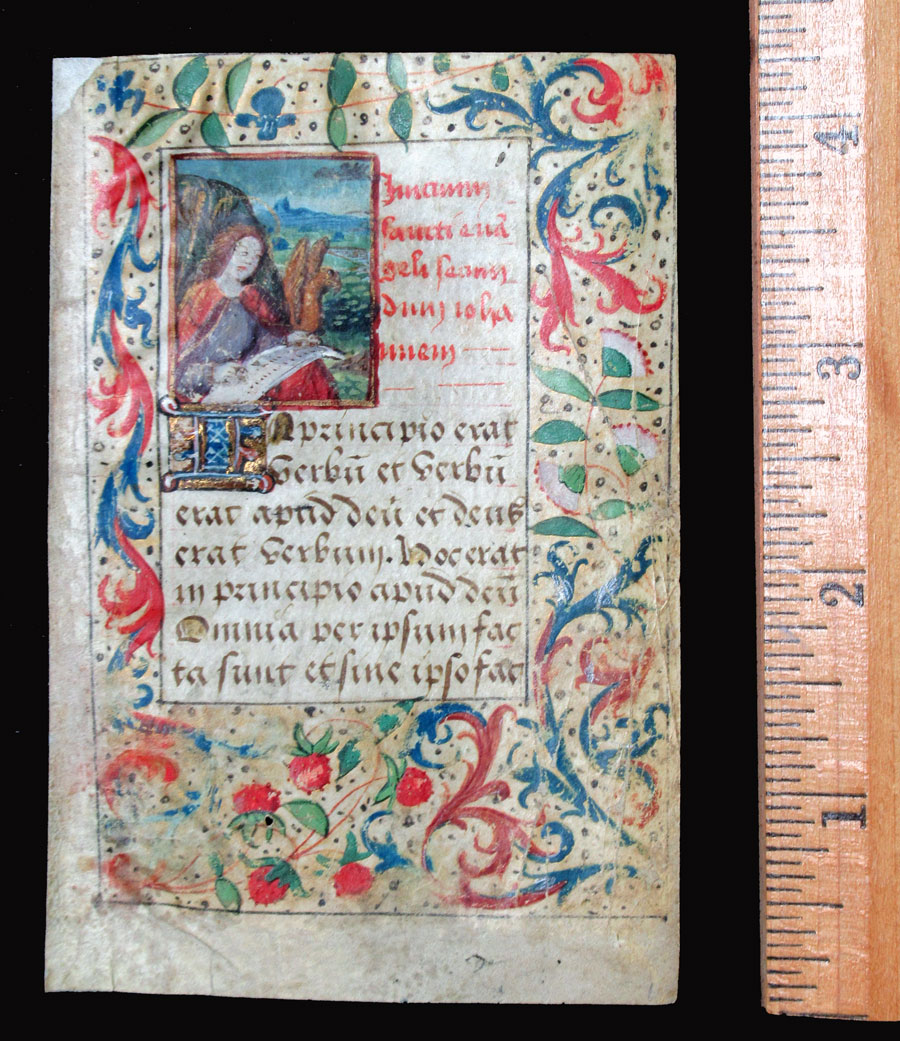 Inicium
sancti euā
geli secun
dum ioha
nnem
In principio erat
verbū et verbū
erat apud deū et deus
erat verbum. Hoc erat
in principio apud deū
Omnia per ipsum fac
ta sunt et sine ipso fac
4
3
2
1